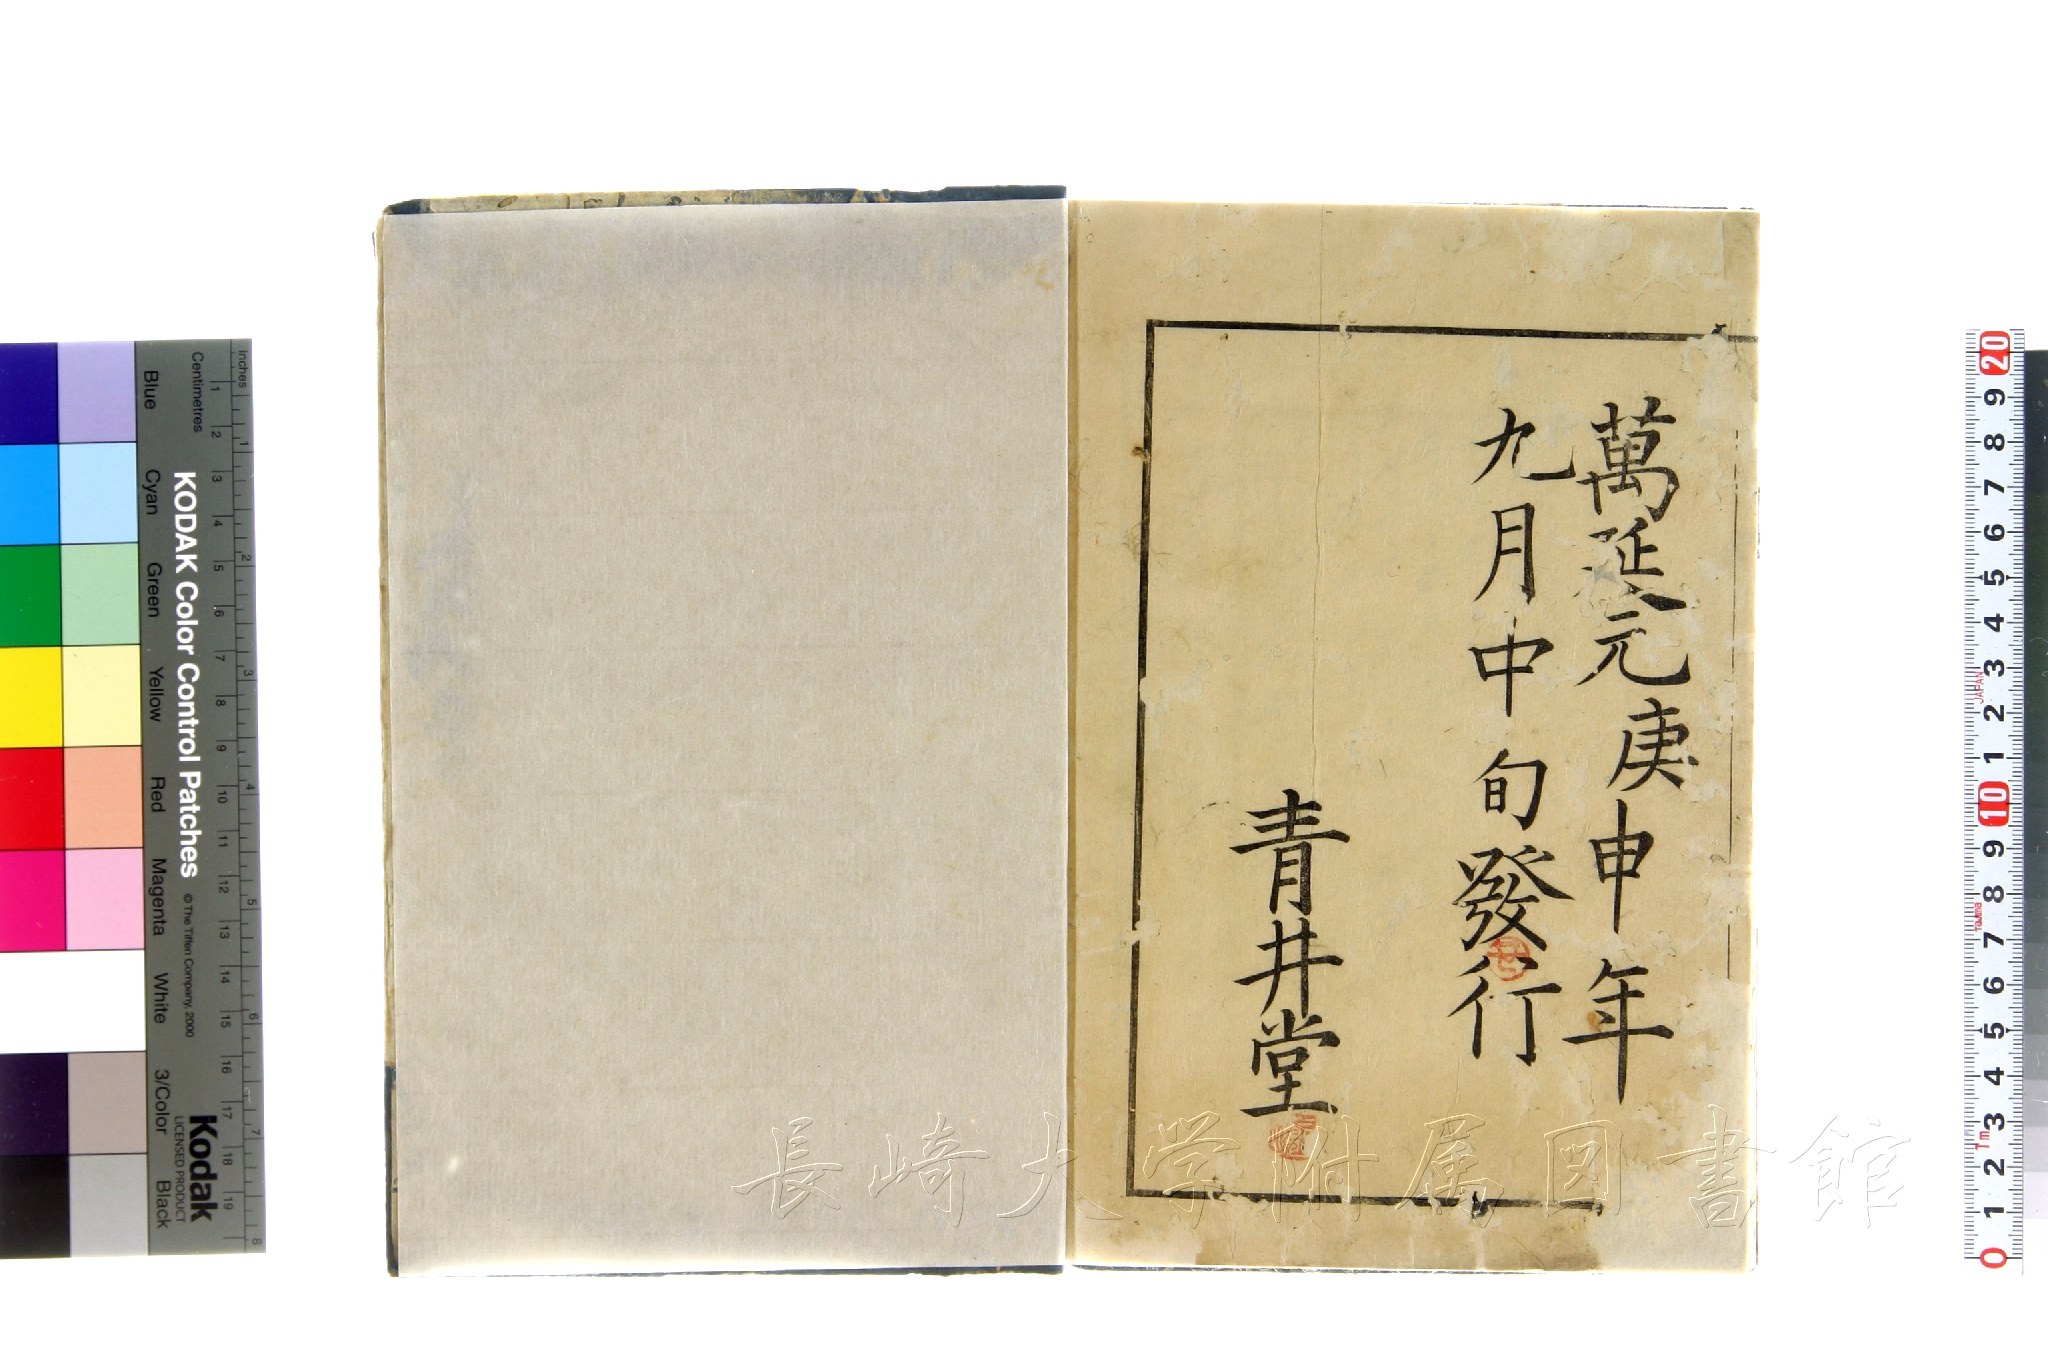 萬延元庚申年
九月中旬發行
青井堂
長崎大学附属図書館
KODAK Color Control Patches
© The Tiffen Company, 2000
Kodak
LICENSED PRODUCT
Inches
Centimetres
1 2 3 4 5 6 7 8
1 2 3 4 5 6 7 8 9 10 11 12 13 14 15 16 17 18 19
Blue Cyan Green Yellow Red Magenta White 3/Color Black
20 9 8 7 6 5 4 3 2 1 10 9 8 7 6 5 4 3 2 1 0
JAPAN